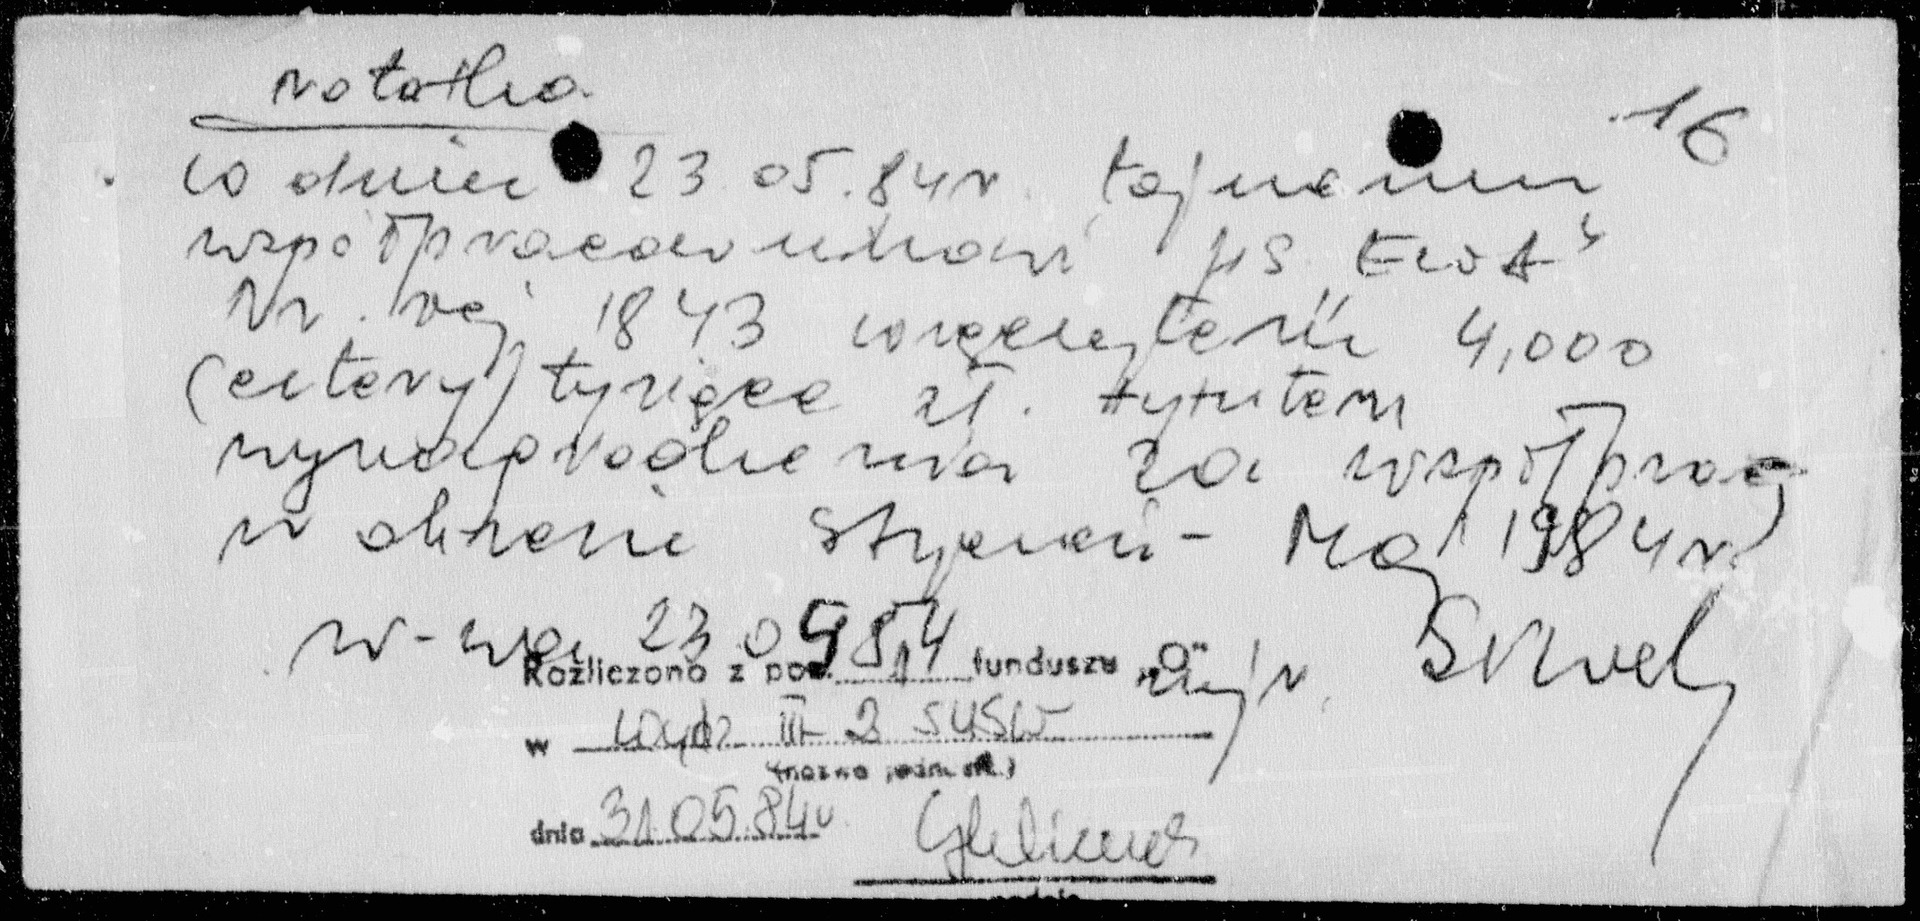 Notatka
16
W dniu 23.05.84r. tajnemu
współpracownikowi ps. "EWA"
Nr. rej 1843 wręczyłem 4,000
(cztery) tysiące zł. tytułem
wynagrodzenia za współpracę
w okresie styczeń - Maj 1984r.
W-wa 23 05 84
Rozliczono z poz. 14 funduszu „O”
mjr.
w Wydz III-2 SUSW
(nazwa jedn. sł.)
dnia 31.05.84r